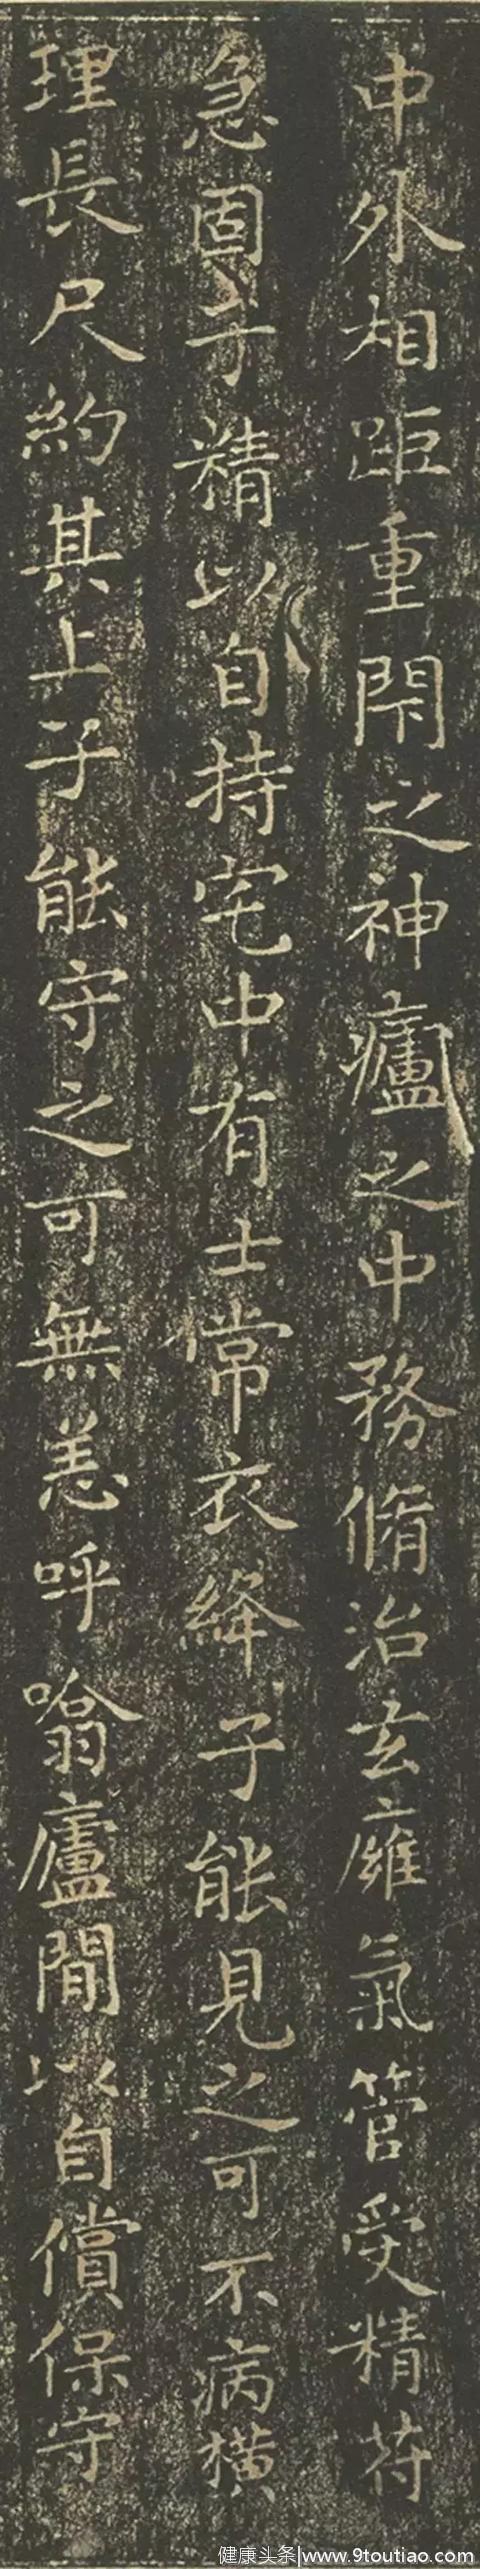 中外相距重閇之神廬之中務脩治玄廱氣管受精苻
急固子精以自持宅中有士常衣絳子能見之可不病横
理長尺約其上子能守之可無恙呼噏廬間以自償保守
健康头条|www.9toutiao.com